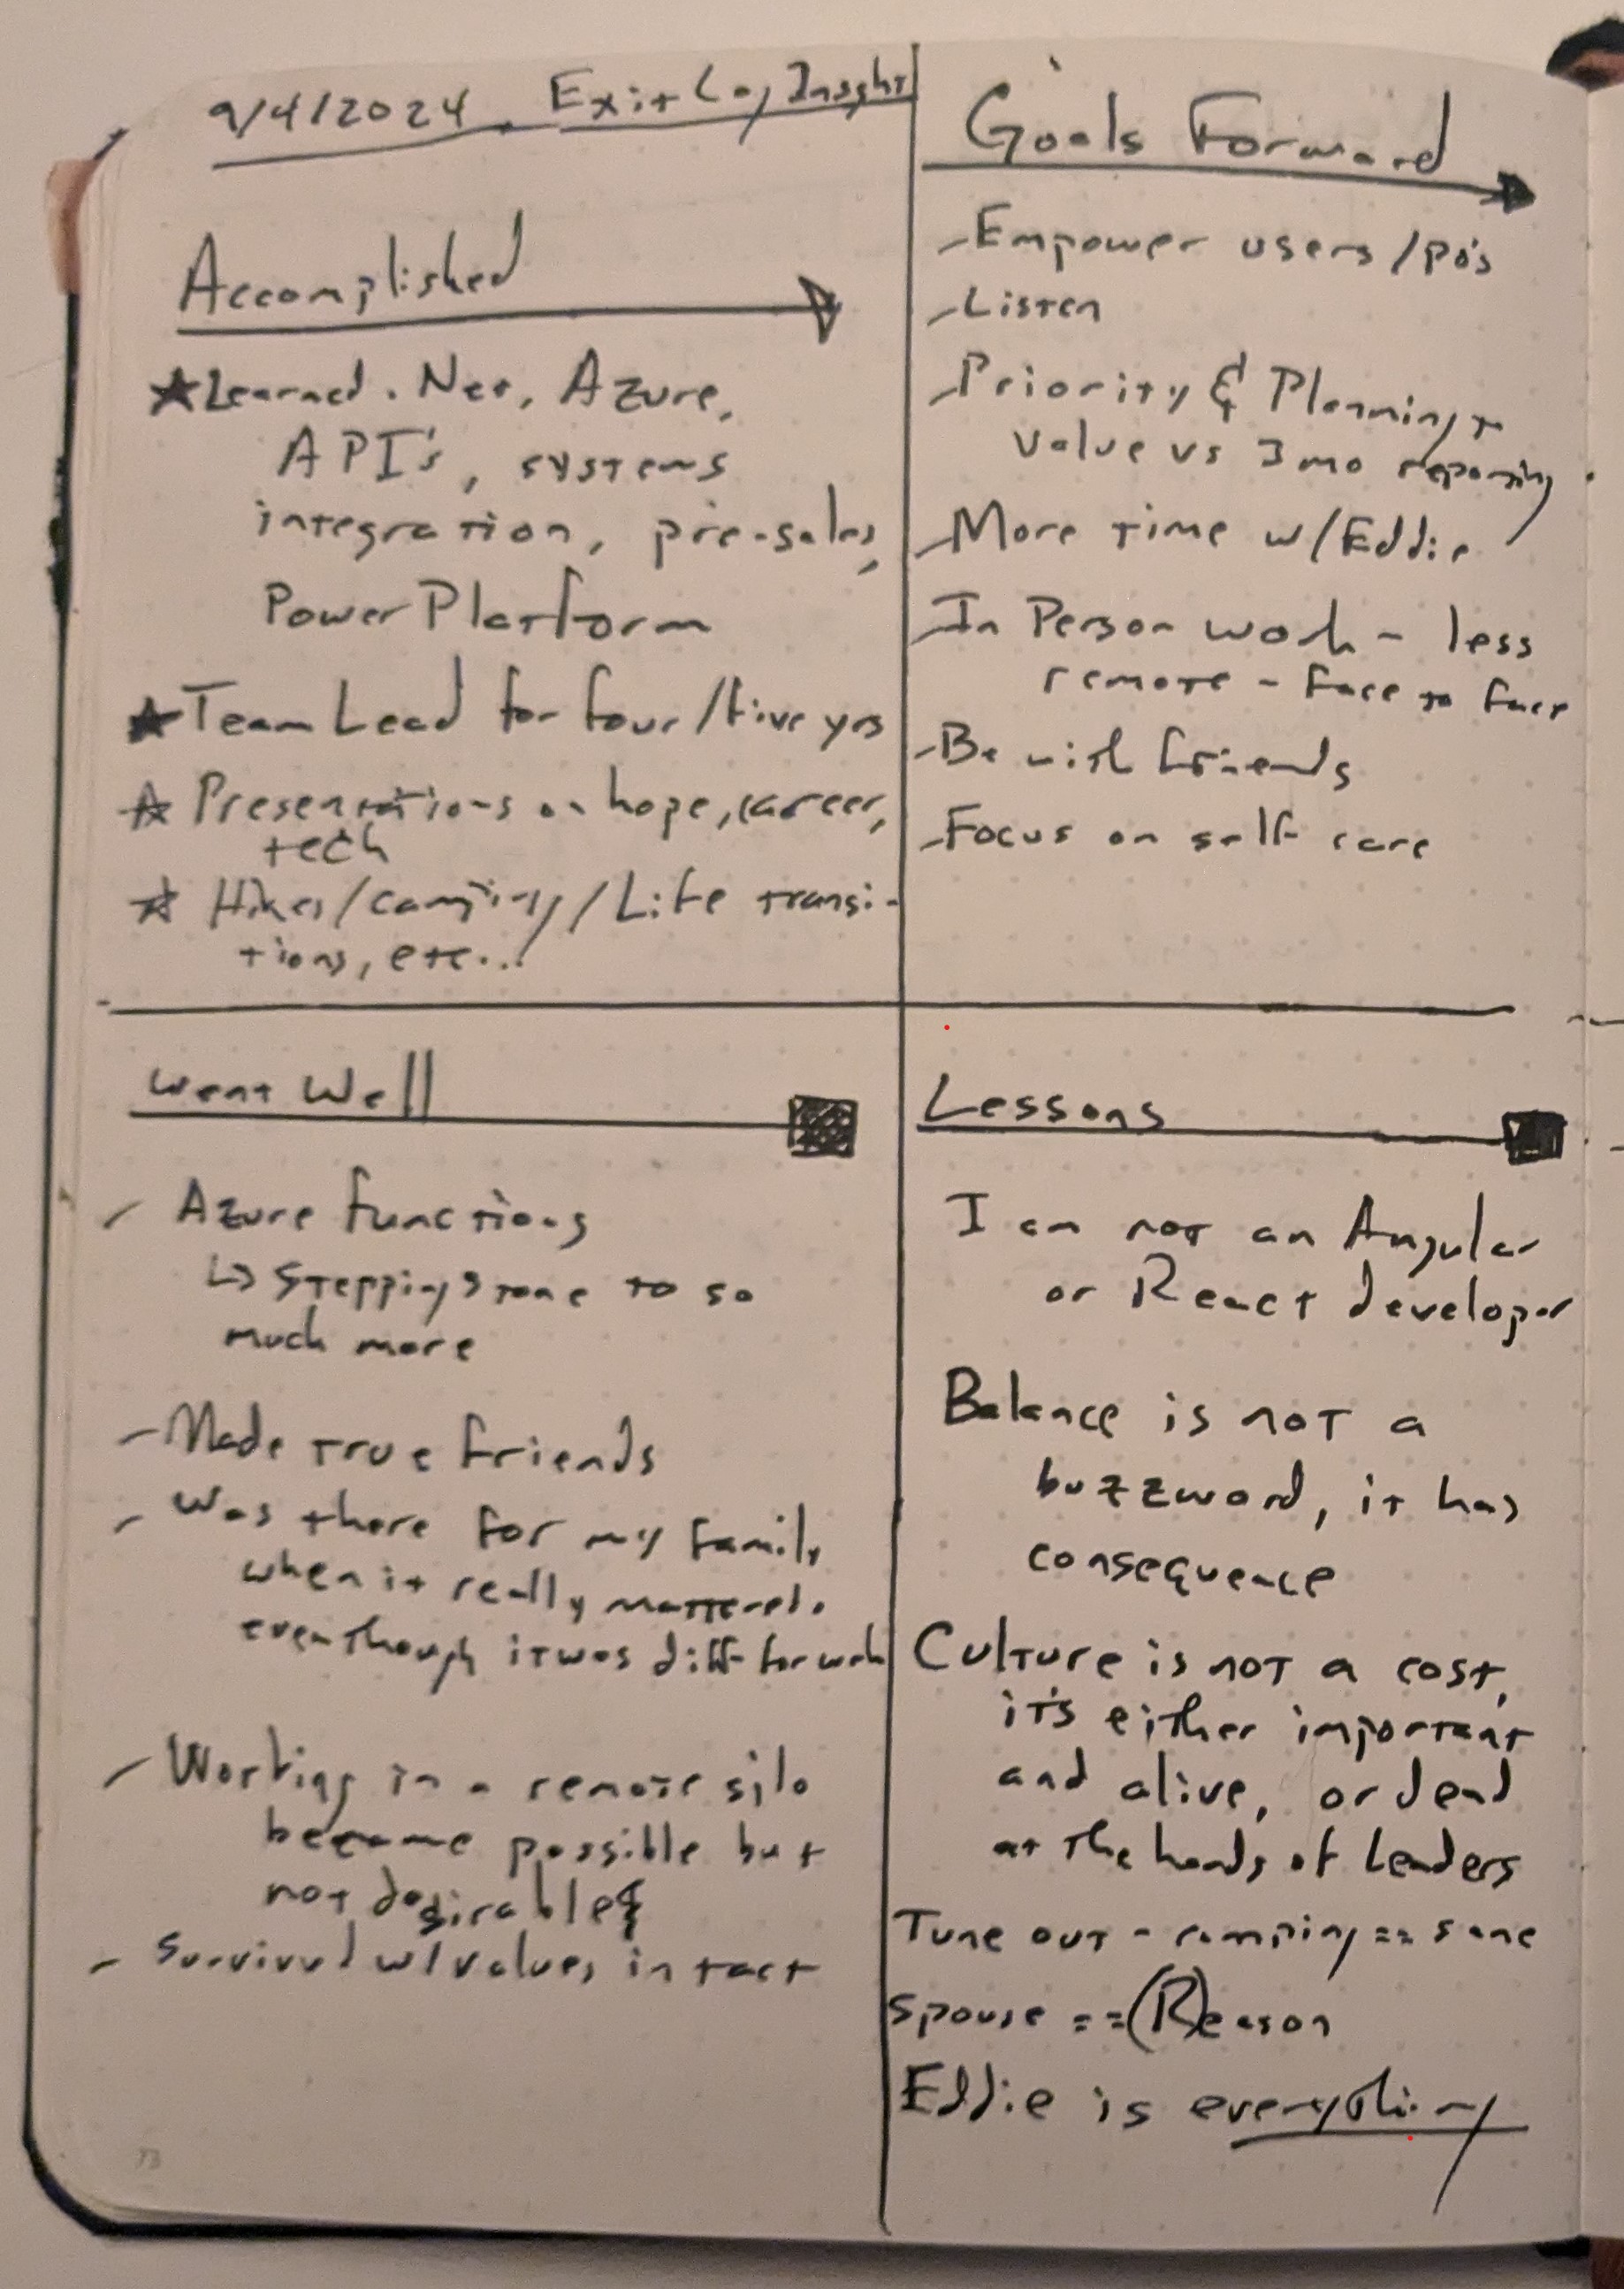 9/4/2024. Exit Log Insght
Accomplished
Learned .Net, Azure,
API's, systems
integration, pre-sales,
Power Platform
Team Lead for four/five yrs
Presentations on hope, career,
tech
Hikes/camping/Life transi-
tions, etc...
Goals Forward
-Empower users/po's
-Listen
-Priority & Planning
value vs 3 mo reporting
-More time w/Eddie
-In Person work - less
remote - face to face
-Be with friends
-Focus on self care
Went Well
- Azure functions
↳ Stepping stone to so
much more
- Made true friends
- Was there for my family
when it really mattered.
even though it was diff for work
- Working in a remote silo
became possible but
not desirable
- Survived w/values in tact
Lessons
I am not an Angular
or React developer
Balance is not a
buzzword, it has
consequence
Culture is not a cost,
it's either important
and alive, or dead
at the hands of leaders
Tune out - camping == sane
Spouse == (R)eason
Eddie is everything